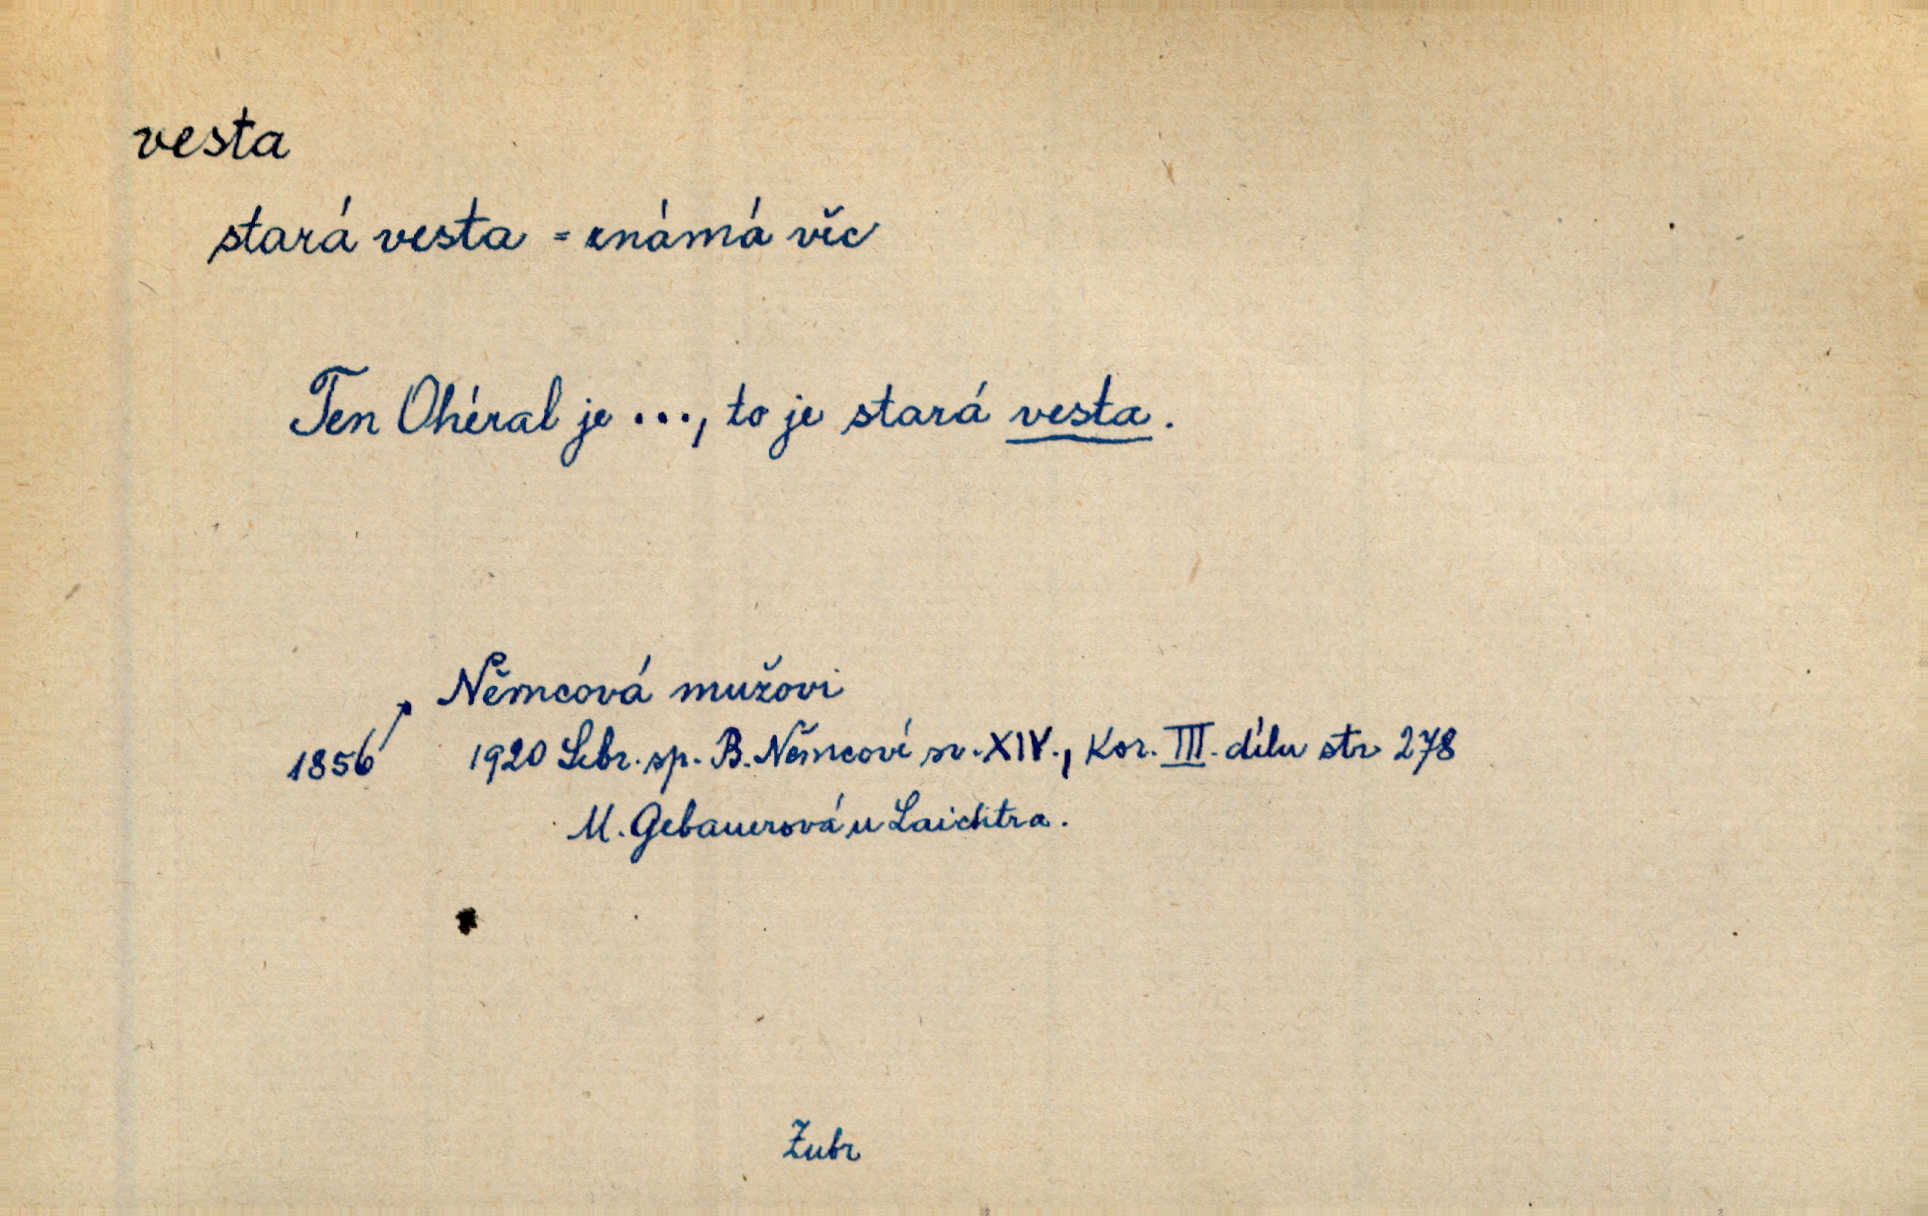 vesta
stará vesta = známá věc
Ten Ohéral je ..., to je stará vesta.
Němcová mužovi
1856 1920 Sebr. sp. B. Němcové sv. XIV., Kor. III. dílu str 278
M. Gebauerová u Laichtra.
Zubr